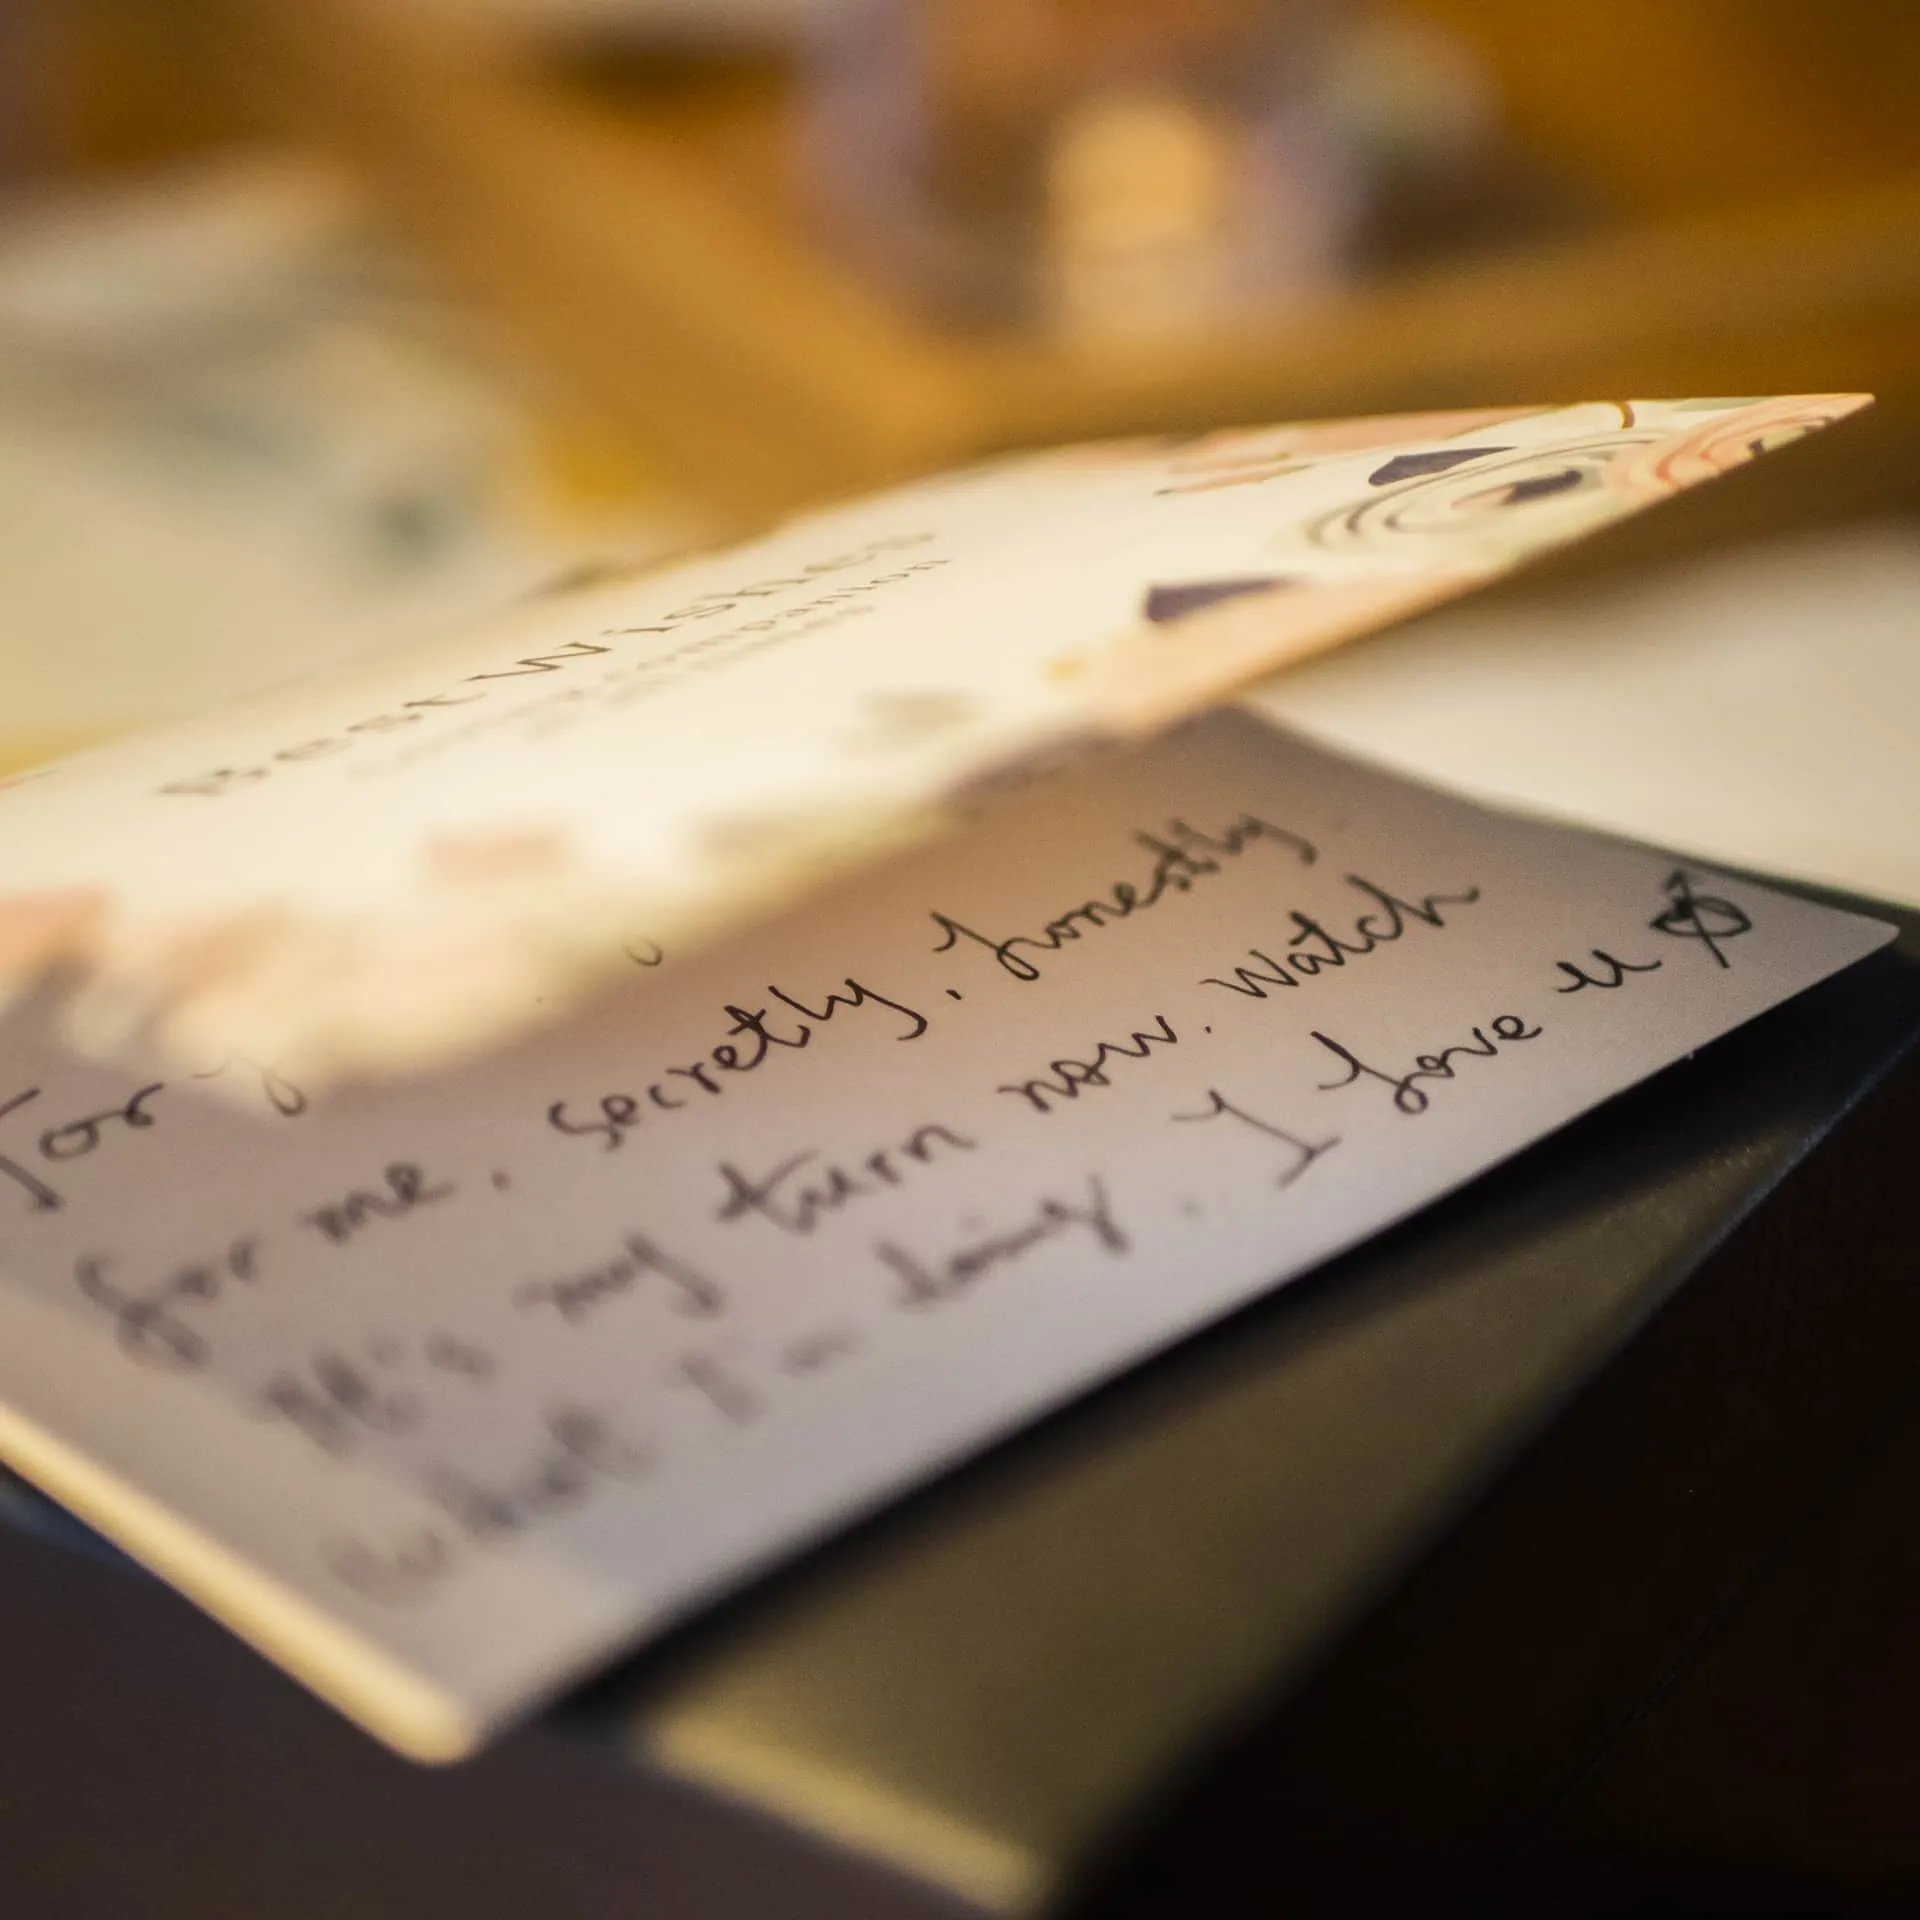 Best Wishes
companion
for
for me. secretly, honestly
It's my turn now. Watch
what I'm doing. I love u